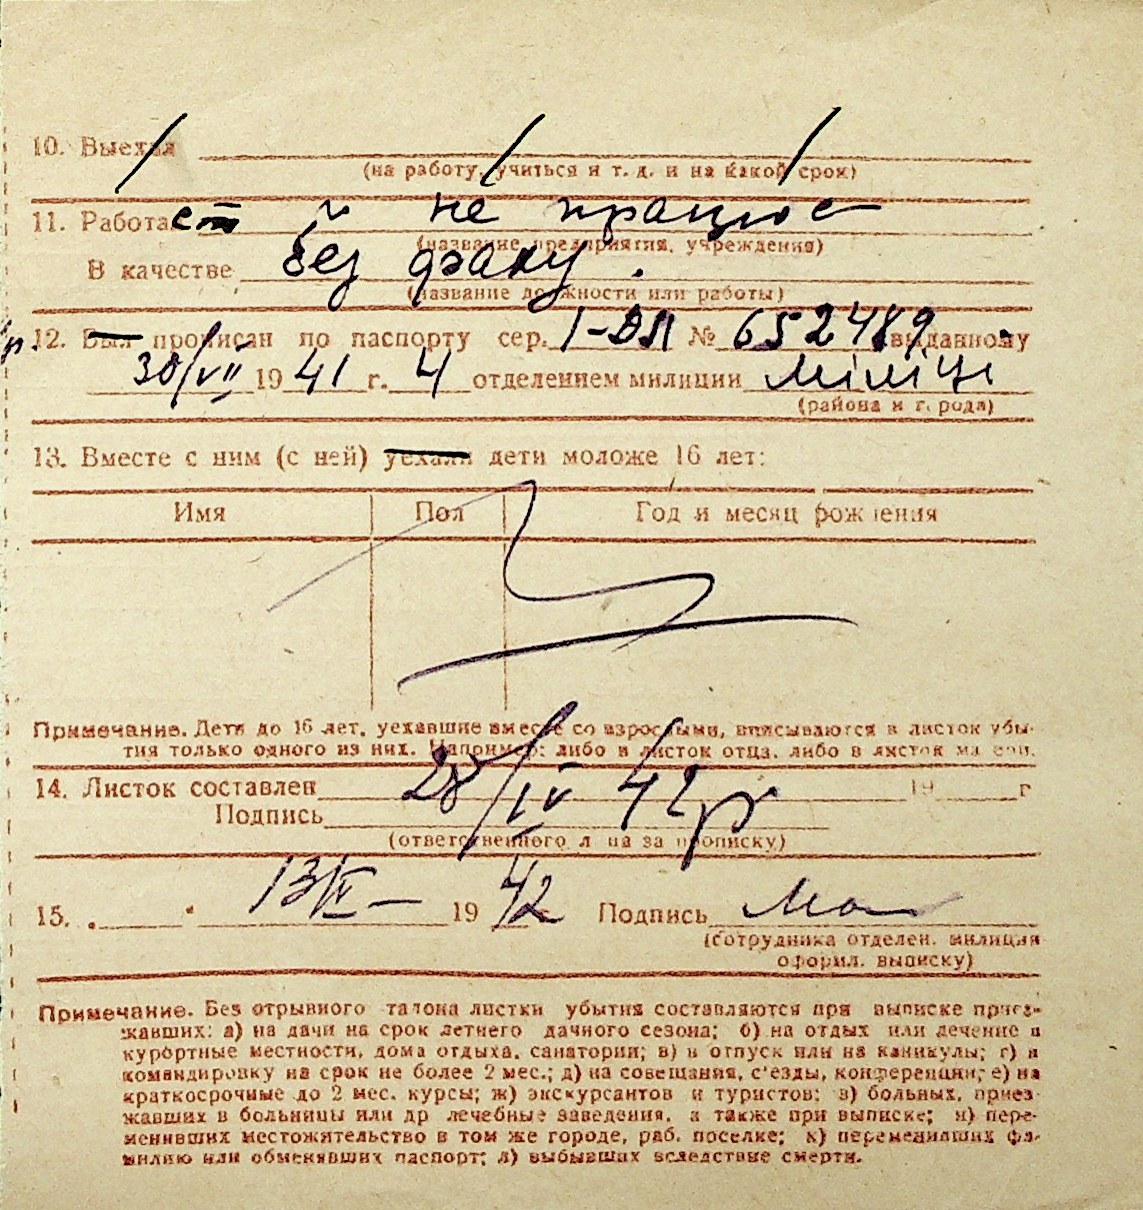 10. Выехал
(на работу, учиться и т. д. и на какой срок)
11. Работает не працює
(название предприятия, учреждения)
В качестве без фаху.
(название должности или работы)
12. Был прописан по паспорту сер. I-ДЛ № 652489 выданному
30/VII 1941 г. 4 отделением милиции міліції
(района и города)
13. Вместе с ним (с ней) уехали дети моложе 16 лет:
Имя Пол Год и месяц рождения
Примечание. Дети до 16 лет, уехавшие вместе со взрослыми, вписываются в листок убы-
тия только одного из них. Например: либо в листок отца, либо в листок матери.
14. Листок составлен 28/IV 42 р 19 г
Подпись
(ответственного лица за прописку)
15. 13/IV 1942 Подпись
(сотрудника отделен. милиции
оформл. выписку)
Примечание. Без отрывного талона листки убытия составляются при выписке приез-
жавших: а) на дачи на срок летнего дачного сезона; б) на отдых или лечение в
курортные местности, дома отдыха, санатории; в) в отпуск или на каникулы; г) в
командировку на срок не более 2 мес.; д) на совещания, с'езды, конференции; е) на
краткосрочные до 2 мес. курсы; ж) экскурсантов и туристов; з) больных, приез-
жавших в больницы или др лечебные заведения, а также при выписке; и) пере-
менивших местожительство в том же городе, раб. поселке; к) переменивших фа-
милию или обменявших паспорт; л) выбывших вследствие смерти.